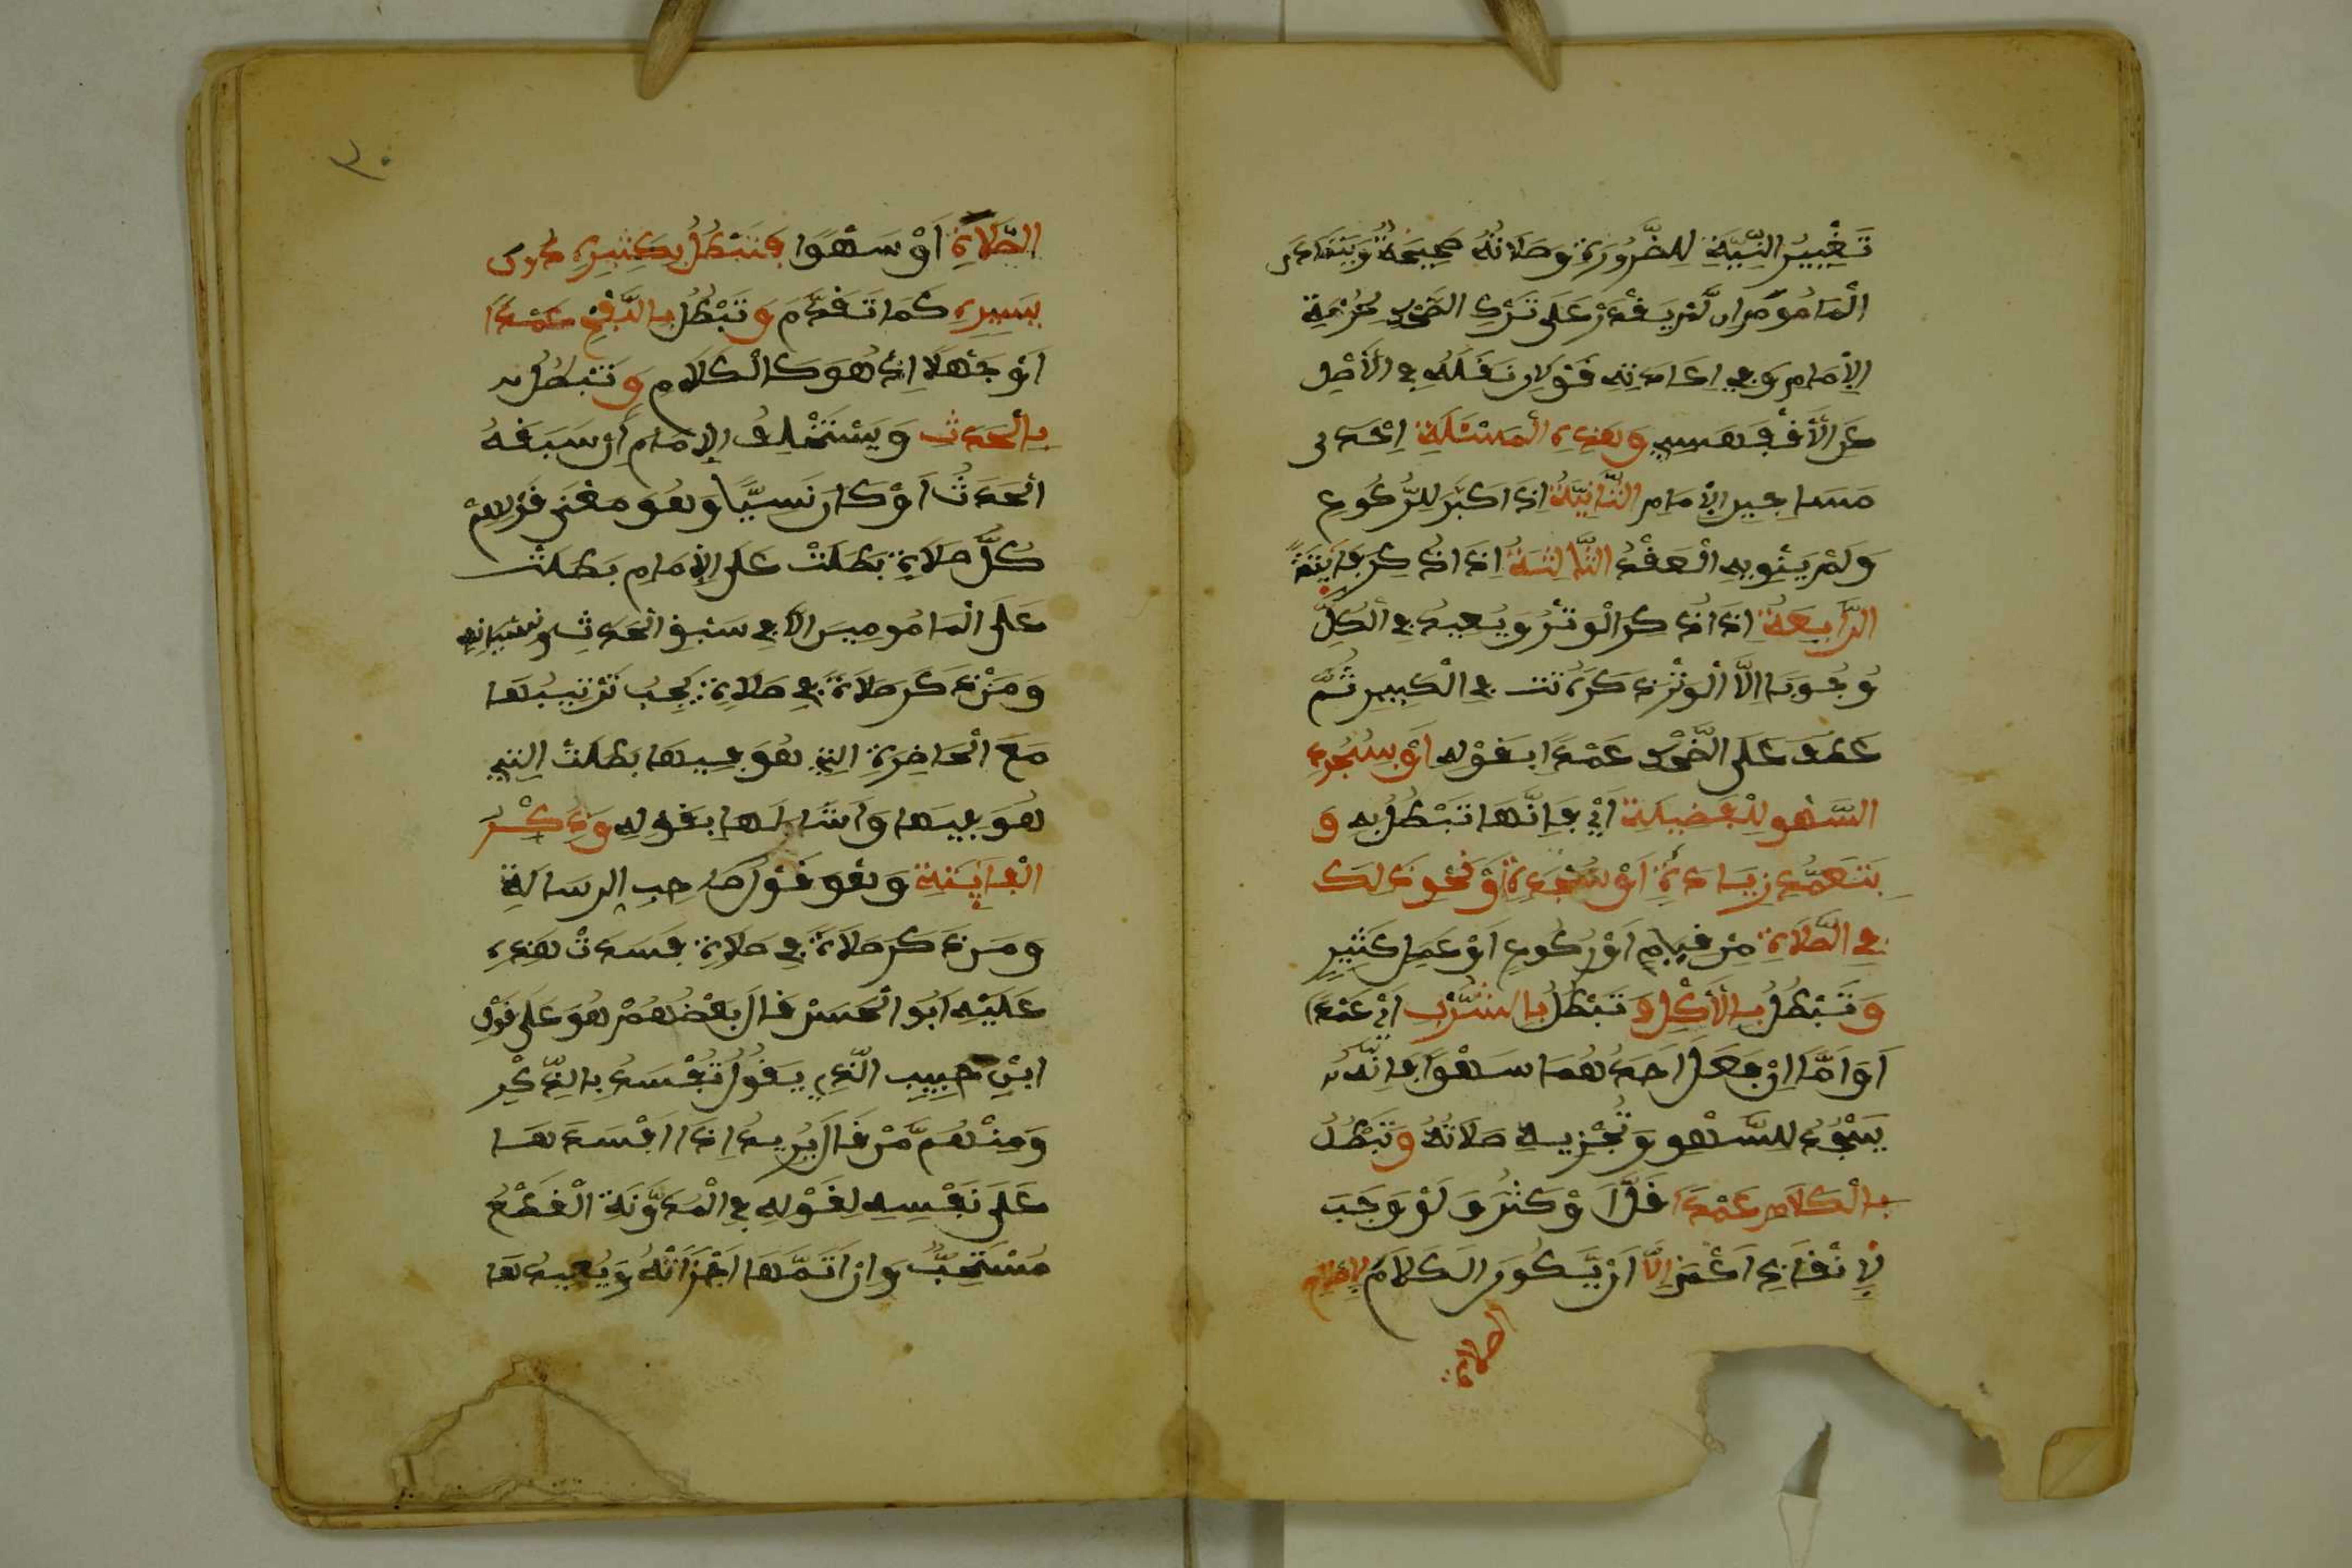 تَغْيِيرُ النِّيَّةِ لِلضَّرُورَةِ وَصَلَاتُهُ صَحِيحَةٌ وَيَتَمَادَى
الْمَامُومُ إِن لَّمْ يَقْدِرْ عَلَى تَرْكِ الضَّحْكِ لِحُرْمَةِ
الْإِمَامِ وَفِي إِعَادَتِهِ قَوْلَانِ نَقَلَهُ فِي الْأَصْلِ
عَنِ الْأَقْفَهْسِي وَهَذِهِ الْمَسْئَلَةُ إِحْدَى
مَسَاجِينِ الْإِمَامِ الثَّانِيَةُ إِذَا كَبَّرَ لِلرُّكُوعِ
وَلَمْ يَنْوِ بِهِ الْعَقْدَ الثَّالِثَةُ إِذَا ذُكِرَ فَايِتَةً
الرَّابِعَةُ إِذَا ذَكَرَ الْوِتْرَ وَيُعِيدُ فِي الْكُلِّ
وُجُوبًا إِلَّا الْوِتْرَ ذَكَرَهُ تت فِي الْكَبِيرِ ثُمَّ
عَطَفَ عَلَى الضَّحْكِ عَمْدًا بِقَوْلِهِ أَوْ بِسُجُودِ
السَّهْوِ لِلْفَضِيلَةِ أَيْ فَإِنَّهَا تَبْطُلُ بِهِ وَ
بِتَعَمُّدِ زِيَادَةِ أَوْ سَجْدَةٍ أَوْ نَحْوِ ذَلِكَ
فِي الصَّلَاةِ مِنْ قِيَامٍ أَوْ رُكُوعٍ أَوْ عَمَلٍ كَثِيرٍ
وَتَبْطُلُ بِالْأَكْلِ وَتَبْطُلُ بِالشُّرْبِ أَيْ عَمْدًا
أَوَ أَمَّا إِنْ فَعَلَ أَحَدَهُمَا سَهْوًا فَإِنَّهُ
يَسْجُدُ لِلسَّهْوِ وَتُجْزِيهِ صَلَاتُهُ وَتَبْطُلُ
بِالْكَلَامِ عَمْدًا قَلَّ أَوْ كَثُرَ وَلَوْ وَجَبَ
لِإِنْقَاذِ أَعْمَى إِلَّا أَنْ يَّكُونَ الْكَلَامُ لِإِصْلَاحِ
الصلاة
الصَّلَاةِ أَوْ سَهْوًا فَتَبْطُلُ بِكَثِيرِهِ دُونَ
يَسِيرِهِ كَمَا تَقَدَّمَ وَتَبْطُلُ بِالنَّفْخِ عَمْدًا
أَوْ جَهْلًا إِذْ هُوَ كَالْكَلَامِ وَتَبْطُلُ
بِالْحَدَثِ وَيَسْتَخْلِفُ الْإِمَامُ إِنْ سَبَقَهُ
الْحَدَثُ أَوْ كَانَ نَسِيًّا وَهُوَ مَعْنَى قَوْلِهِمْ
كُلُّ صَلَاةٍ بَطَلَتْ عَلَى الْإِمَامِ بَطَلَتْ
عَلَى الْمَامُومِينَ إِلَّا فِي سَبْقِ الْحَدَثِ وَنِسْيَانِهِ
وَمَنْ ذَكَرَ صَلَاةً فِي صَلَاةٍ يَجِبُ تَرْتِيبُهَا
مَعَ الْحَاضِرَةِ الَّتِي هُوَ فِيهَا بَطَلَتْ الَّتِي
هُوَ فِيهَا وَأَشَارَ لَهَا بِقَوْلِهِ وَذِكْرُ
الْفَايِتَةِ وَهُوَ قَوْلُ صَاحِبِ الرِّسَالَةِ
وَمَنْ ذَكَرَ صَلَاةً فِي صَلَاةٍ فَسَدَتْ هَذِهِ
عَلَيْهِ أَبُو الْحَسَنِ قَالَ بَعْضُهُمْ هُوَ عَلَى قَوْلِ
ابْنِ حَبِيبٍ الَّذِي يَقُولُ تُفْسَدُ بِالذِّكْرِ
وَمِنْهُم مَّنْ قَالَ يُرِيدُ إِذَا أَفْسَدَهَا
عَلَى نَفْسِهِ لِقَوْلِهِ فِي الْمُدَوَّنَةِ الْقَطْعُ
مُسْتَحَبٌّ وَإِنْ أَتَمَّهَا أَجْزَأَتْهُ وَيُعِيدُهَا
٣٠